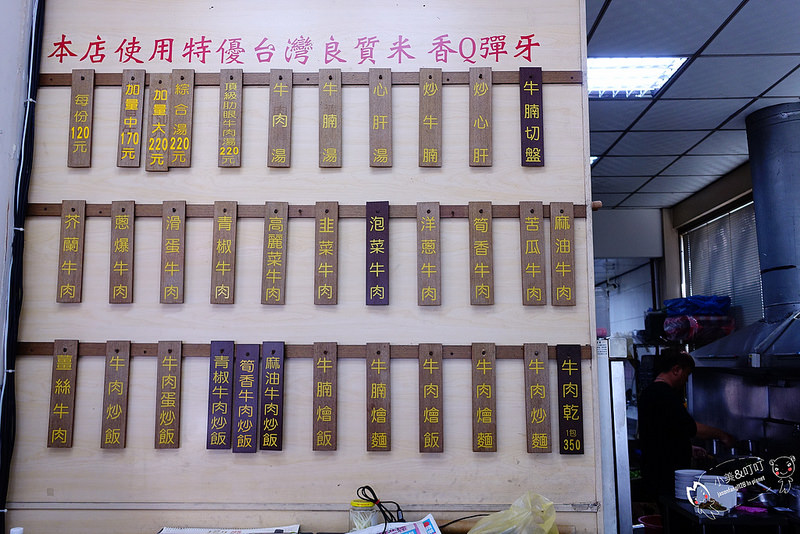 本店使用特優台灣良質米 香Q彈牙
每份120元
加量中170元
加量大220元
綜合湯220元
頂級肋眼牛肉湯220元
牛肉湯
牛腩湯
心肝湯
炒牛腩
炒心肝
牛腩切盤
芥蘭牛肉
蔥爆牛肉
滑蛋牛肉
青椒牛肉
高麗菜牛肉
韭菜牛肉
泡菜牛肉
洋蔥牛肉
筍香牛肉
苦瓜牛肉
麻油牛肉
薑絲牛肉
牛肉炒飯
牛肉蛋炒飯
青椒牛肉炒飯
筍香牛肉炒飯
麻油牛肉炒飯
牛腩燴飯
牛腩燴麵
牛肉燴飯
牛肉燴麵
牛肉炒麵
牛肉乾1包350
小美&叮叮